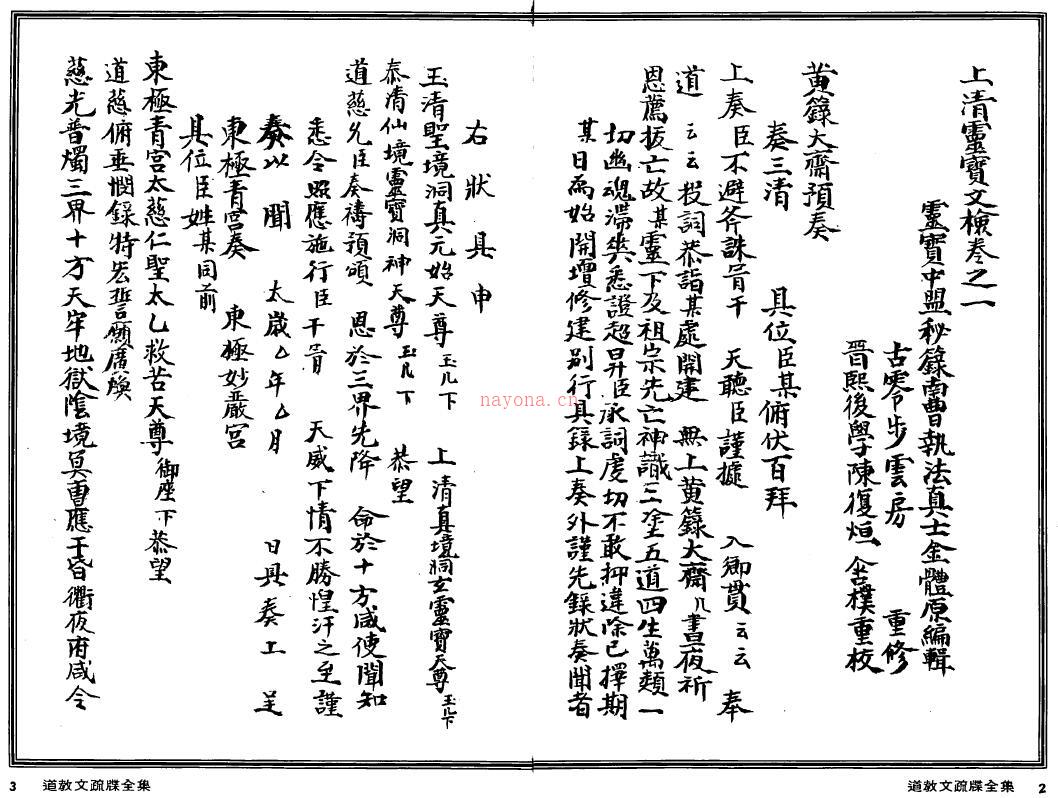 上清靈寶文檢卷之一
靈寶中盟秘籙南曹執法真士金體原編輯
古雩步雲房 重修
晉熙後學陳復烜 含樸重校
黃籙大齋預奏
奏三清 具位臣某俯伏百拜
上奏臣不避斧誅冒干 天聽臣謹據 入鄉貫云云 奉
道 云云 投詞恭詣某處開建 無上黃籙大齋几晝夜祈
恩薦拔亡故某靈下及祖宗先亡神識三塗五道四生萬類一
切幽魂滯爽悉證超昇臣承詞虔切不敢抑違除已擇期
某日為始開壇修建別行具錄上奏外謹先錄狀奏聞者
右狀具申
玉清聖境洞真元始天尊 玉几下 上清真境洞玄靈寶天尊 玉几下
泰清仙境靈寶洞神天尊 玉几下 恭望
道慈允臣奏禱預頒 恩於三界先降 命於十方咸使聞知
悉令照應施行臣干冒 天威下情不勝惶汗之至謹
奏以 聞 太歲△年△月 日具奏上 呈
東極青宮奏 東極妙嚴宮
具位臣姓某同前
東極青宮太慈仁聖太乙救苦天尊 御座下 恭望
道慈俯垂憫錄特宏誓願廣煥
慈光普燭三界十方天牢地獄陰境冥曹應干昏衢夜府咸令
nayona.cn
3 道教文疏牒全集
道教文疏牒全集 2